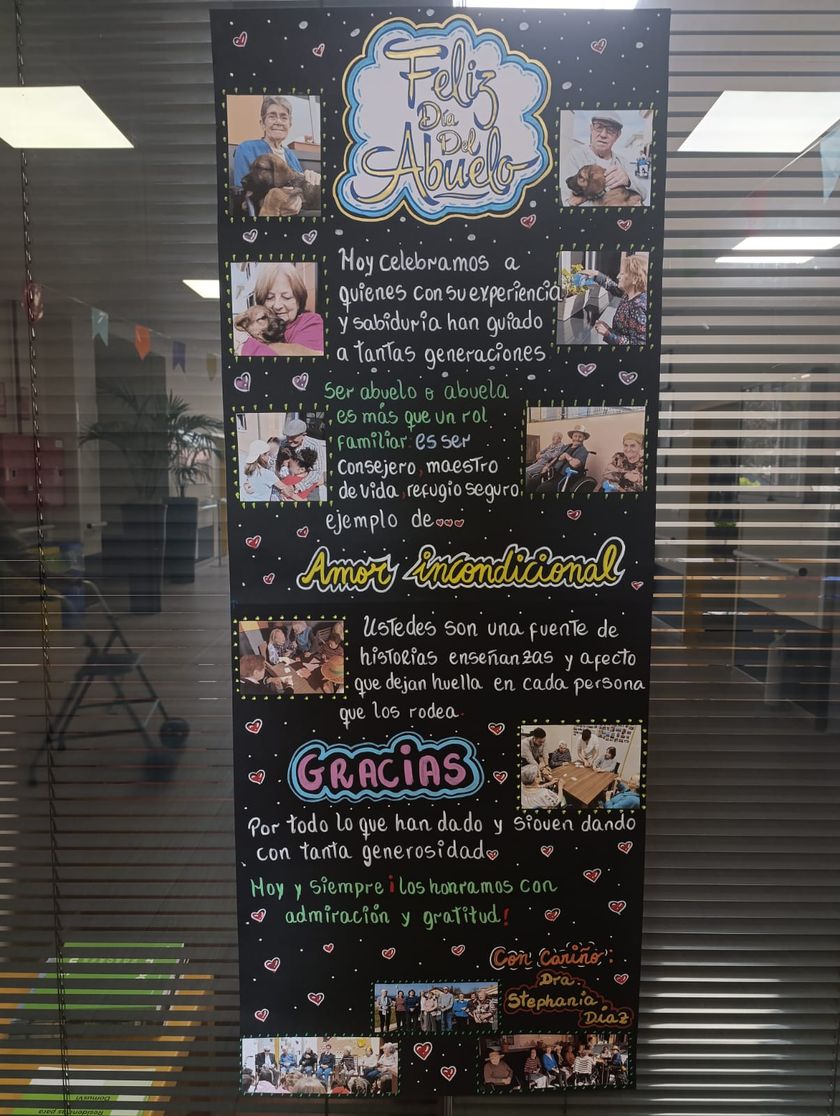 Feliz
Día
Del
Abuelo
Hoy celebramos a
quienes con su experiencia
y sabiduria han guiado
a tantas generaciones
Ser abuelo o abuela
es más que un rol
familiar: es ser
consejero, maestro
de vida, refugio seguro
ejemplo de
Amor incondicional
Ustedes son una fuente de
historias enseñanzas y afecto
que dejan huella en cada persona
que los rodea.
GRACIAS
Por todo lo que han dado y siguen dando
con tanta generosidad
Hoy y siempre ¡los honramos con
admiración y gratitud!
Con Cariño:
Dra.
Stephania
Díaz
Residencias para
DomusVi